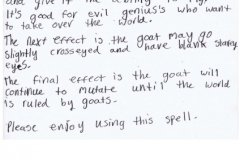 and give it the ability to
It's good for evil genius's who want
to take over the world.
The next effect is the goat may go
slightly crosseyed and have blank starey
eyes.
The final effect is the goat will
continue to mutate until the world
is ruled by goats.
Please enjoy using this spell.